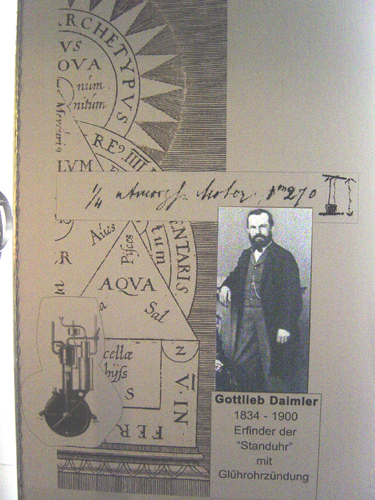 ARCHETYPVS
VS
OVA
núm
nitúm
RE9.IIII
LVM
1/4 atmosph. Motor,
270
Aúis
Pisces
tum
ENTARIS
R
AQVA
a
Sal
cellæ
bÿſs
S
N
V·IN
FER
Gottlieb Daimler
1834 - 1900
Erfinder der
"Standuhr"
mit
Glührohrzündung